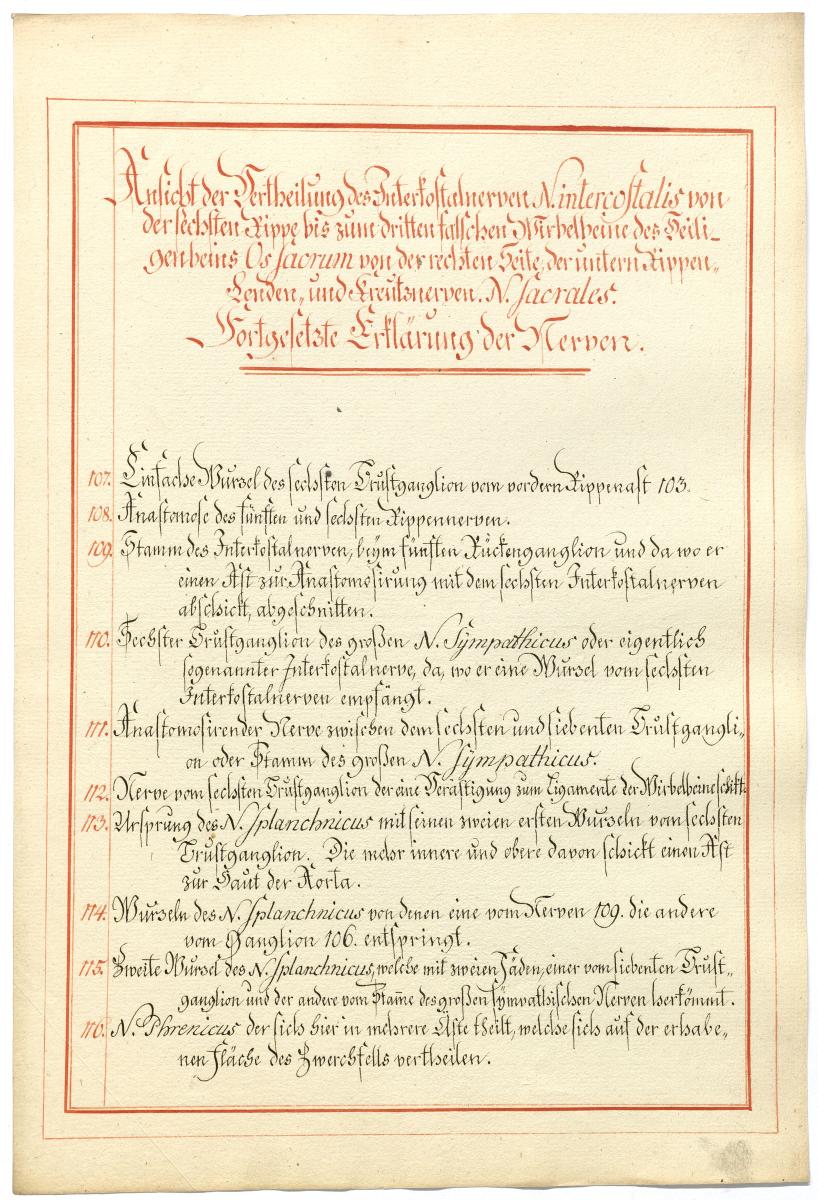 Ansicht der Vertheilung des Interkostalnerven N. intercostalis von
der sechsten Rippe bis zum dritten falschen Wirbelbeine des Heili-
genbeins Os sacrum von der rechten Seite, der untern Rippen„
Lenden„ und Kreutznerven. N. sacrales.
Fortgesetzte Erklärung der Nerven.
107. Einfache Wurzel des sechsten Brustganglion vom vordern Rippenast 103.
108. Anastomose des fünften und sechsten Rippennerven.
109. Stamm des Interkostalnerven, beÿm fünften Rückenganglion und da wo er
einen Ast zur Anastomosirung mit dem sechsten Interkostalnerven
abschickt, abgeschnitten.
110. Sechster Brustganglion des großen N. Sÿmpathicus oder eigentlich
sogenannter Interkostalnerve, da, wo er eine Wurzel vom sechsten
Interkostalnerven empfängt.
111. Anastomosirender Nerve zwischen dem sechsten und siebenten Brustgangli„
on oder Stamm des großen N. sÿmpathicus.
112. Nerve vom sechsten Brustganglion der eine Verästigung zum Ligamente der Wirbelbeine schikt.
113. Ursprung des N. splanchnicus mit seinen zweien ersten Wurzeln vom sechsten
Brustganglion. Die mehr innere und obere davon schickt einen Ast
zur Haut der Aorta.
114. Wurzeln des N. splanchnicus von denen eine vom Nerven 109. die andere
vom Ganglion 106. entspringt.
115. Zweite Wurzel des N. splanchnicus, welche mit zweien Fäden, einer vom siebenten Brust„
ganglion und der andere vom Stam̅e des großen sÿmpathischen Nerven herkömmt.
116. N. Phrenicus der sich hier in mehrere Äste theilt, welche sich auf der erhabe„
nen Fläche des Zwerchfells vertheilen.